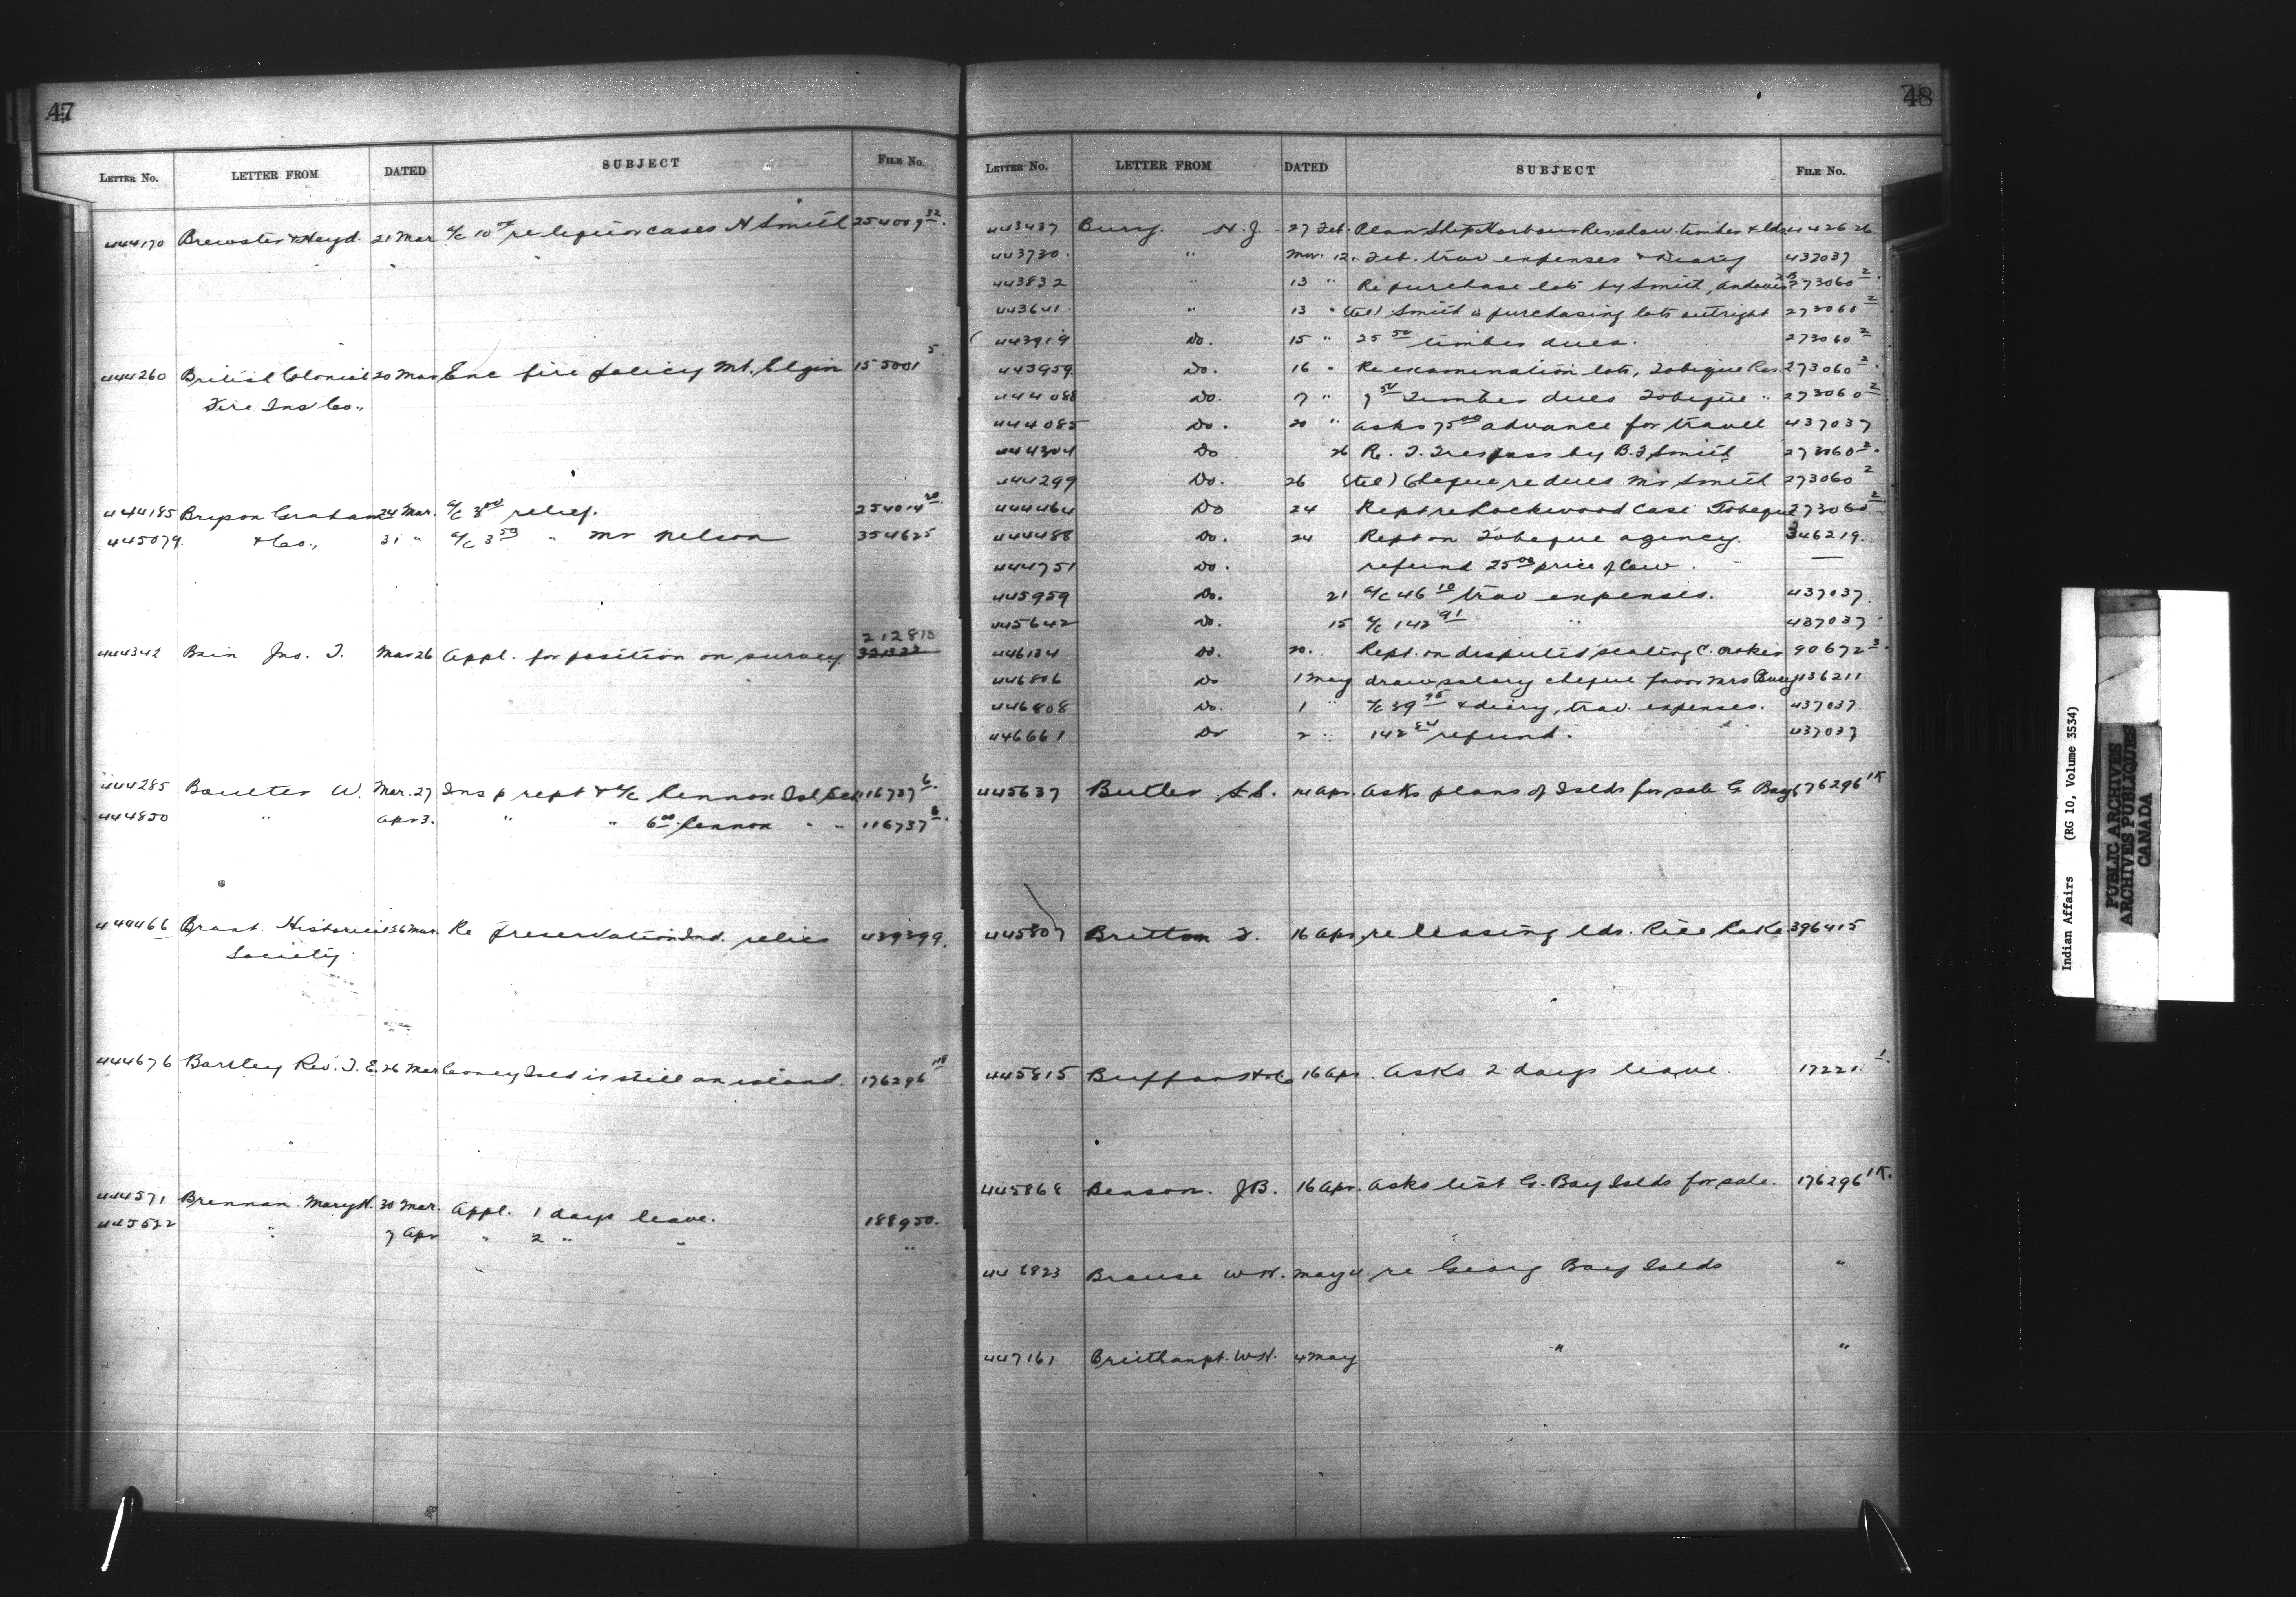 47
LETTER No. LETTER FROM DATED SUBJECT FILE No.
444170 Brewster & Heyd. 21 Mar a/c 10 re liquor cases N Smith 254009 32.
444260 British Colonial 20 Mar Enc fire policy Mt. Elgin 155001 5
Fire Ins Co.,
444185 Bryson Graham 24 Mar. a/c 3 00 relief. 254014 20.
445079. & Co., 31 " a/c 3 50 " Mr Nelson 354625
212810
444342 Bain Jno. T. Mar 26 Appl. for position on survey
444285 Boulter W. Mar. 27 Insp rept & a/c Lennox Isl Sch 116737 6.
444850 " Apr 3. " " 6 00 Lennox " " 116737 6.
444466 Brant Historical 26 Mar. Re preservation Ind. relics 439399.
Society.
444676 Bartley Rev. T. E. 26 Mar Isld is still an island. 176296
444571 Brennan Mary H. 30 Mar. Appl. 1 days leave. 188950.
445522 " 7 Apr " 2 " " "
48
LETTER No. LETTER FROM DATED SUBJECT FILE No.
443437 Bury H. J. - 27 Feb. Plan Ship Harbour Res. show. timber & lds 442626.
443730. " Mar. 12. Feb. trav expenses & Diary 437037
443832 " 13 " Re purchase lots by Smith, Andover 273060 2.
443641 " 13 " (tel) Smith is purchasing lots outright 273060 2
443919 Do. 15 " 25 50 timber dues. 273060 2
443959 Do. 16 " Re examination lots, Tobique Res. 273060 2.
444088 Do. 7 " 9 50 Timber dues Tobique " 273060 2
444085 Do. 20 " asks 75 00 advance for travel 437037
444304 Do 26 Re. T. Trespass by B. F Smith 273060 2.
444299 Do. 26 (tel) Cheque re dues Mr Smith 273060 2
444464 Do 24 Rept re Lockwood Case Tobique 273060 2.
444488 Do. 24 Rept on Tobique agency. 346219.
444751 Do. refund 25 00 price of cow. —
445959 Do. 21 a/c 46 10 trav expenses. 437037.
445642 Do. 15 a/c 142 91 " 437037.
446134 Do. 20. Rept. on disputed sealing C. 90672 3.
446806 Do 1 May draw salary cheque favor Mrs Bury 436211
446808 Do. 1 " a/c 39 95 & diary, trav. expenses. 437037.
446661 Do 2 " 142 84 refund. 437037
445637 Butler S. S. 14 Apr. asks plans of Islds for sale G Bay 176296 1K
445807 Britton F. 16 Apr, re leasing lds. Rice Lake 396415
445815 16 Apr. Asks 2 days leave. 17221 1.
445868 Benson. J B. 16 Apr. asks list G. Bay Islds for sale. 176296 1K.
446823 Brouse W H. May 4 re Georg Bay Islds "
447161 Breithaupt. W H. 4 May " "
Indian Affairs (RG 10, Volume 3534)
PUBLIC ARCHIVES
ARCHIVES PUBLIQUES
CANADA